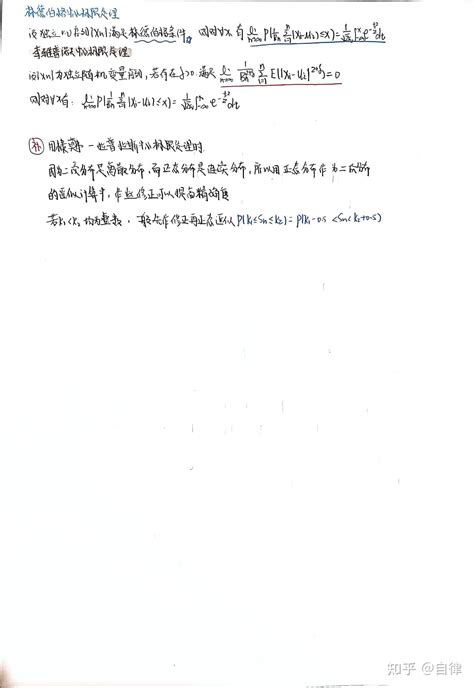 林德伯格中心极限定理
设独立r.v.序列{Xn}满足林德伯格条件, 则对∀x有 lim n→∞ P(1/Bn ∑i=1^n (Xi-μi)≤x)=1/√2π ∫-∞^x e^(-t²/2)dt
李雅普诺夫中心极限定理
设{Xn}为独立随机变量序列, 若存在δ>0. 满足 lim n→∞ 1/Bn^(2+δ) ∑i=1^n E(|Xi-μi|^(2+δ))=0
则对∀x有: lim n→∞ P(1/Bn ∑i=1^n (Xi-μi)≤x)=1/√2π ∫-∞^x e^(-t²/2)dt
补 用棣莫弗-拉普拉斯中心极限定理时
因为二项分布是离散分布, 而正态分布是连续分布, 所以用正态分布作为二项分布
的近似计算中, 作些修正可以提高精确度
若k₁<k₂ 均为整数, 一般先作修正再正态近似 P(k₁≤Sn≤k₂)=P(k₁-0.5<Sn<k₂+0.5)
知乎 @自律